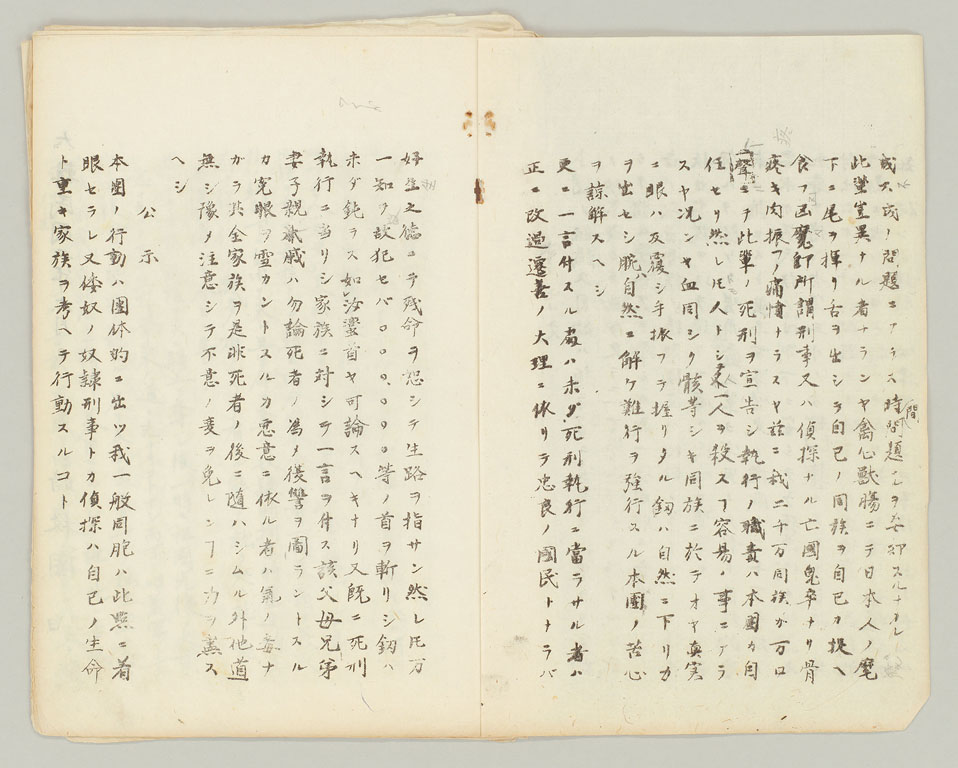 或ハ成ノ問題ニアラス時間問題ニシヲ委却スルナルレ
間
此輩豈異ナル者ナランヤ禽心獣腸ニテ日本人ノ麾
下ニ尾ヲ揮リ舌ヲ出シテ自己ノ同族ヲ自己カ捉ヘ
食フ函魔卽所謂刑事又ハ偵探ナル亡國鬼卒ナリ骨
疼キ肉振フノ痛情ナラスヤ玆ニ我二千万同族ガ万口
一聲ニテ此輩ノ死刑ヲ宣告シ執行ノ職責ハ本團カ自
任セリ然レ圧人トシテ人一人ヲ殺スヿ容易ノ事ニアラ
スヤ況ンヤ血同シク骸等シキ同族ニ於テオヤ眞実
ニ眼ハ反覆シ手振フテ握リタル釼ハ自然ニ下リカ
ヲ出セシ腕自然ニ解ケ難行ヲ強行スル本團ノ苦心
ヲ諒解スヘシ
更ニ一言付スル處ハ未ダ死刑執行ニ當ラサル者ハ
正ニ改過遷善ノ大理ニ依リテ忠良ノ國民トナラバ
好生之德ニテ残命ヲ恕シテ生路ヲ指サン然レ圧万
一知ツ故犯セバ○○○、○○○等ノ首ヲ斬リシ釼ハ
未ダ鈍ラス如何汝蛮首ヤ可論スヘキナリ又既ニ死刑
執行ニ当リシ家族ニ対シテ一言ヲ付ス該父母兄弟
妻子親戚ハ勿論死者ノ爲メ復讐ヲ圖ラントスル
カ寃眼ヲ雪カントスルカ悪意ニ依ル者ハ氣ノ毒ナ
ガラ其全家族ヲ是非死者ノ後ニ隨ハシムル外他道
無シ豫メ注意シテ不意ノ変ヲ免レンヿニ
ヘシ
公示
本團ノ行動ハ團体的ニ出ツ我一般同胞ハ此點ニ着
眼セラレ又倭奴ノ奴隷刑事トカ偵探ハ自己ノ生命
ト重キ家族ヲ考ヘテ行動スルコト